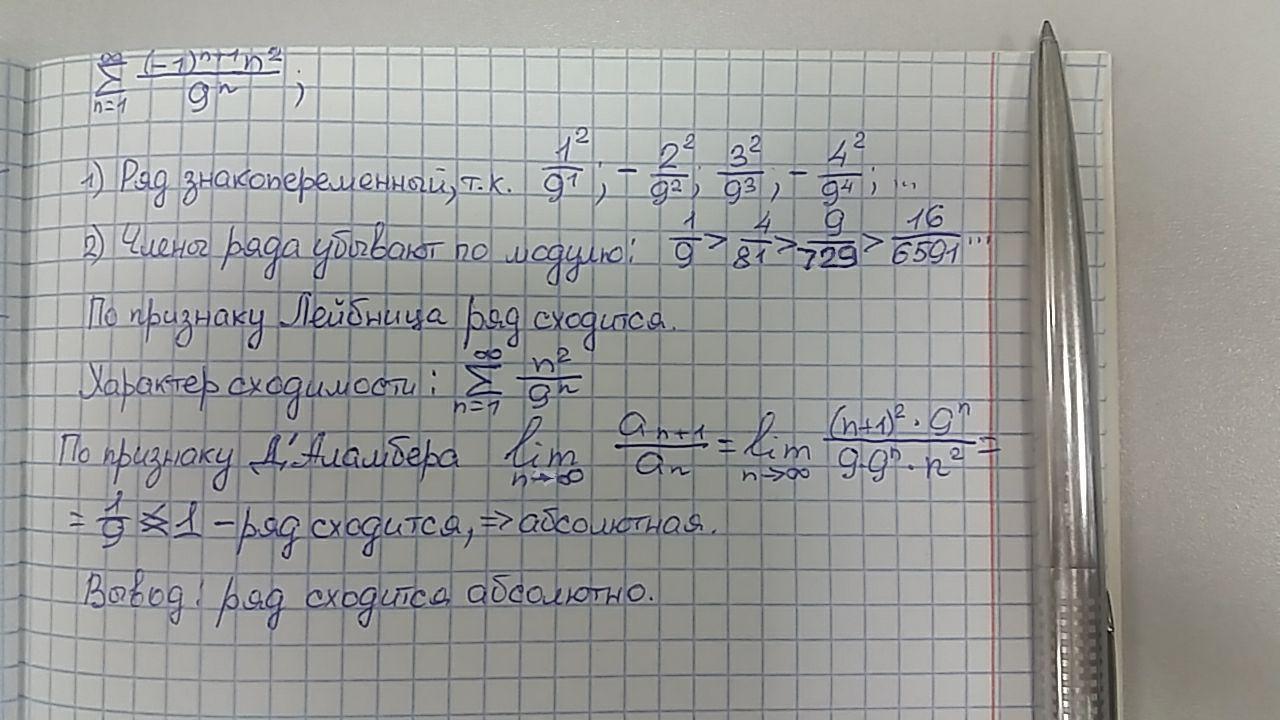 ∑_{n=1}^{∞} \frac{(-1)^{n+1} n^2}{9^n};
1) Ряд знакопеременный, т.к. \frac{1^2}{9^1}; -\frac{2^2}{9^2}; \frac{3^2}{9^3}; -\frac{4^2}{9^4}; ...
2) Члены ряда убывают по модулю: \frac{1}{9} > \frac{4}{81} > \frac{9}{729} > \frac{16}{6591} ...
По признаку Лейбница ряд сходится.
Характер сходимости: ∑_{n=1}^{∞} \frac{n^2}{9^n}
По признаку Д'Аламбера \lim_{n→∞} \frac{a_{n+1}}{a_n} = \lim_{n→∞} \frac{(n+1)^2 · 9^n}{9·9^n · n^2} =
= \frac{1}{9} < 1 – ряд сходится, => абсолютная.
Вывод: ряд сходится абсолютно.